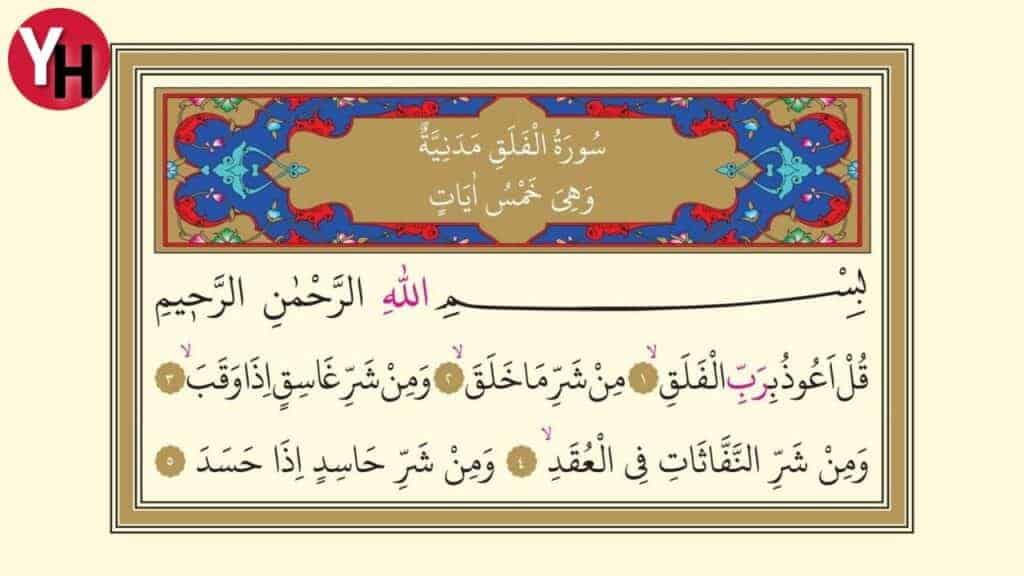 YH
سُورَةُ الْفَلَقِ مَدَنِيَّةٌ
وَهِىَ خَمْسُ اٰيَاتٍ
بِسْمِ اللّٰهِ الرَّحْمٰنِ الرَّحٖيمِ
قُلْ اَعُوذُ بِرَبِّ الْفَلَقِۙ ﴿١﴾ مِنْ شَرِّ مَا خَلَقَۙ ﴿٢﴾ وَمِنْ شَرِّ غَاسِقٍ اِذَا وَقَبَۙ ﴿٣﴾
وَمِنْ شَرِّ النَّفَّاثَاتِ فِى الْعُقَدِۙ ﴿٤﴾ وَمِنْ شَرِّ حَاسِدٍ اِذَا حَسَدَ ﴿٥﴾